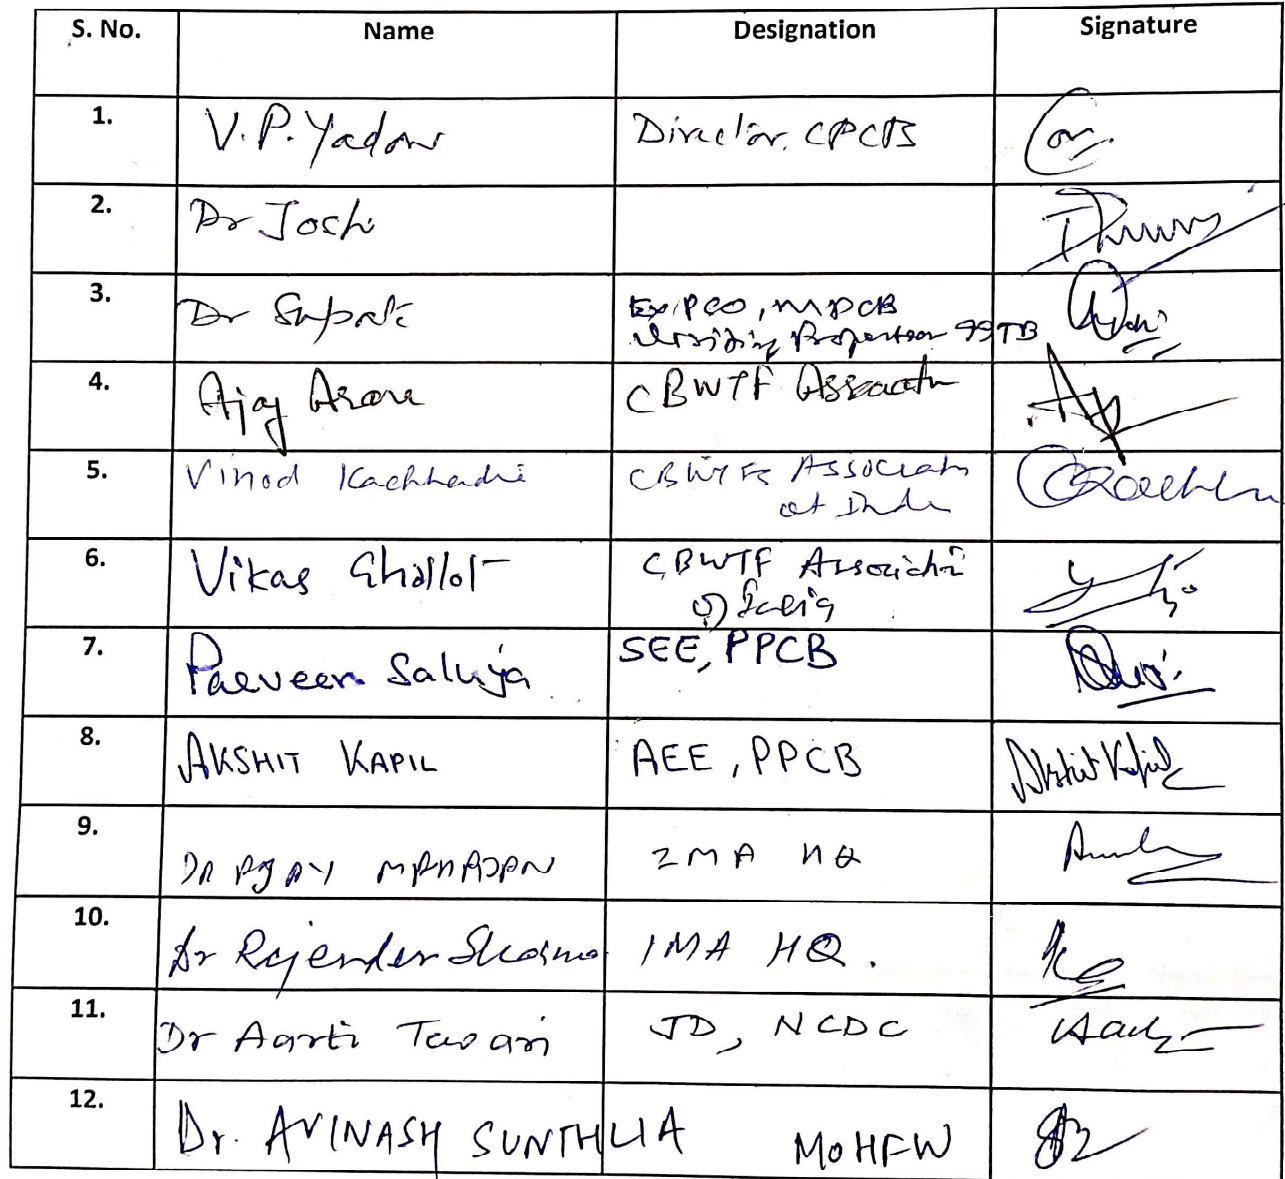 S. No. Name Designation Signature
1. V.P. Yadav Director, CPCB
2. Dr Joshi
3. Dr Supate Ex PSO, MPCB
4. Ajay Arora CBWTF Association
5. Vinod Kachhadia CBWTFs Associatn
of India
6. Vikas Ghallot CBWTF Association
of India
7. Parveen Saluja SEE, PPCB
8. AKSHIT KAPIL AEE, PPCB Akshit Kapil
9. DR AJAY MAHAJAN IMA HQ
10. Dr Rajender Sharma IMA HQ.
11. Dr Aarti Tewari JD, NCDC
12. Dr. AVINASH SUNTHLIA MOHFW